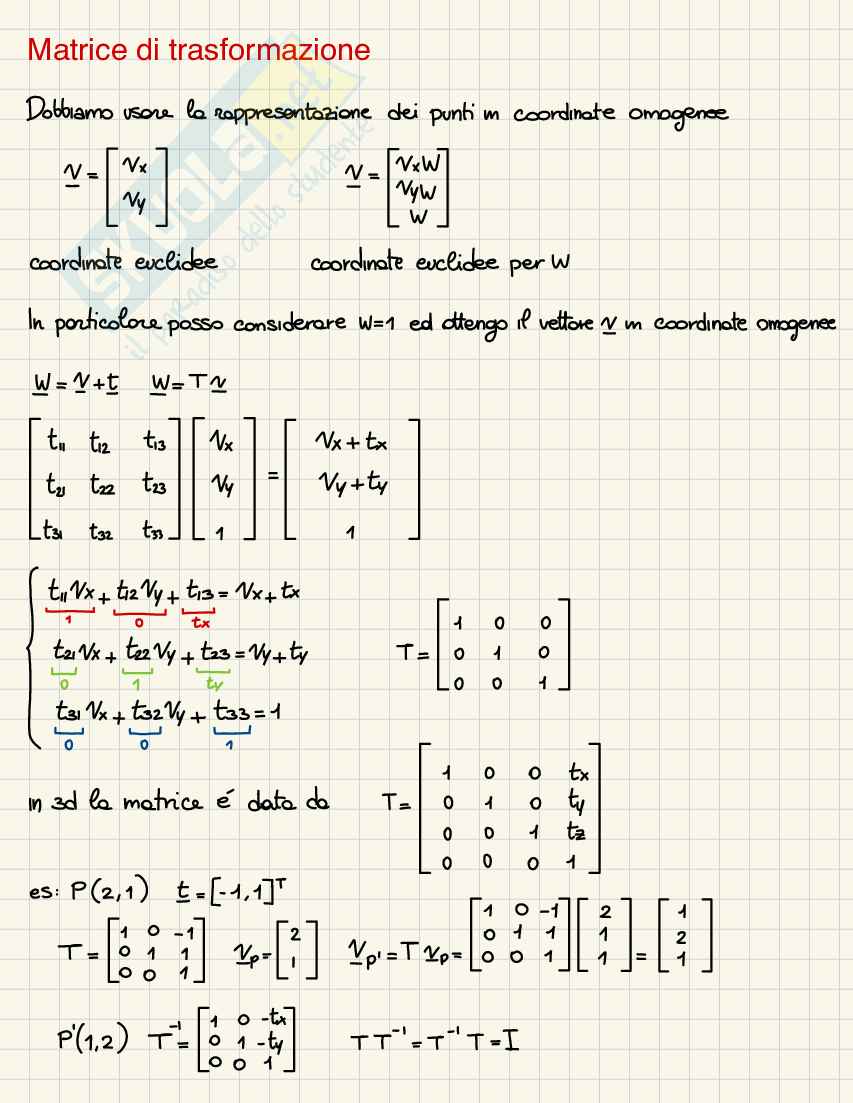 Matrice di trasformazione
Dobbiamo usare la rappresentazione dei punti in coordinate omogenee
v = [Vx Vy] v = [VxW VyW W]
coordinate euclidee coordinate euclidee per W
In particolare posso considerare W=1 ed ottengo il vettore v in coordinate omogenee
W = v + t W = T v
[t11 t12 t13
t21 t22 t23
t31 t32 t33] [Vx Vy 1] = [Vx + tx Vy + ty 1]
t11Vx + t12Vy + t13 = Vx + tx
1 0 tx
t21Vx + t22Vy + t23 = Vy + ty
0 1 ty
t31Vx + t32Vy + t33 = 1
0 0 1
T = [1 0 0
0 1 0
0 0 1]
in 3d la matrice é data da T = [1 0 0 tx
0 1 0 ty
0 0 1 tz
0 0 0 1]
es: P(2,1) t = [-1,1]ᵀ
T = [1 0 -1
0 1 1
0 0 1] vp = [2 1] vp' = T vp = [1 0 -1
0 1 1
0 0 1] [2 1 1] = [1 2 1]
P'(1,2) T⁻¹ = [1 0 -tx
0 1 -ty
0 0 1] T T⁻¹ = T⁻¹ T = I
SKUOLA.net
il paradiso dello studente